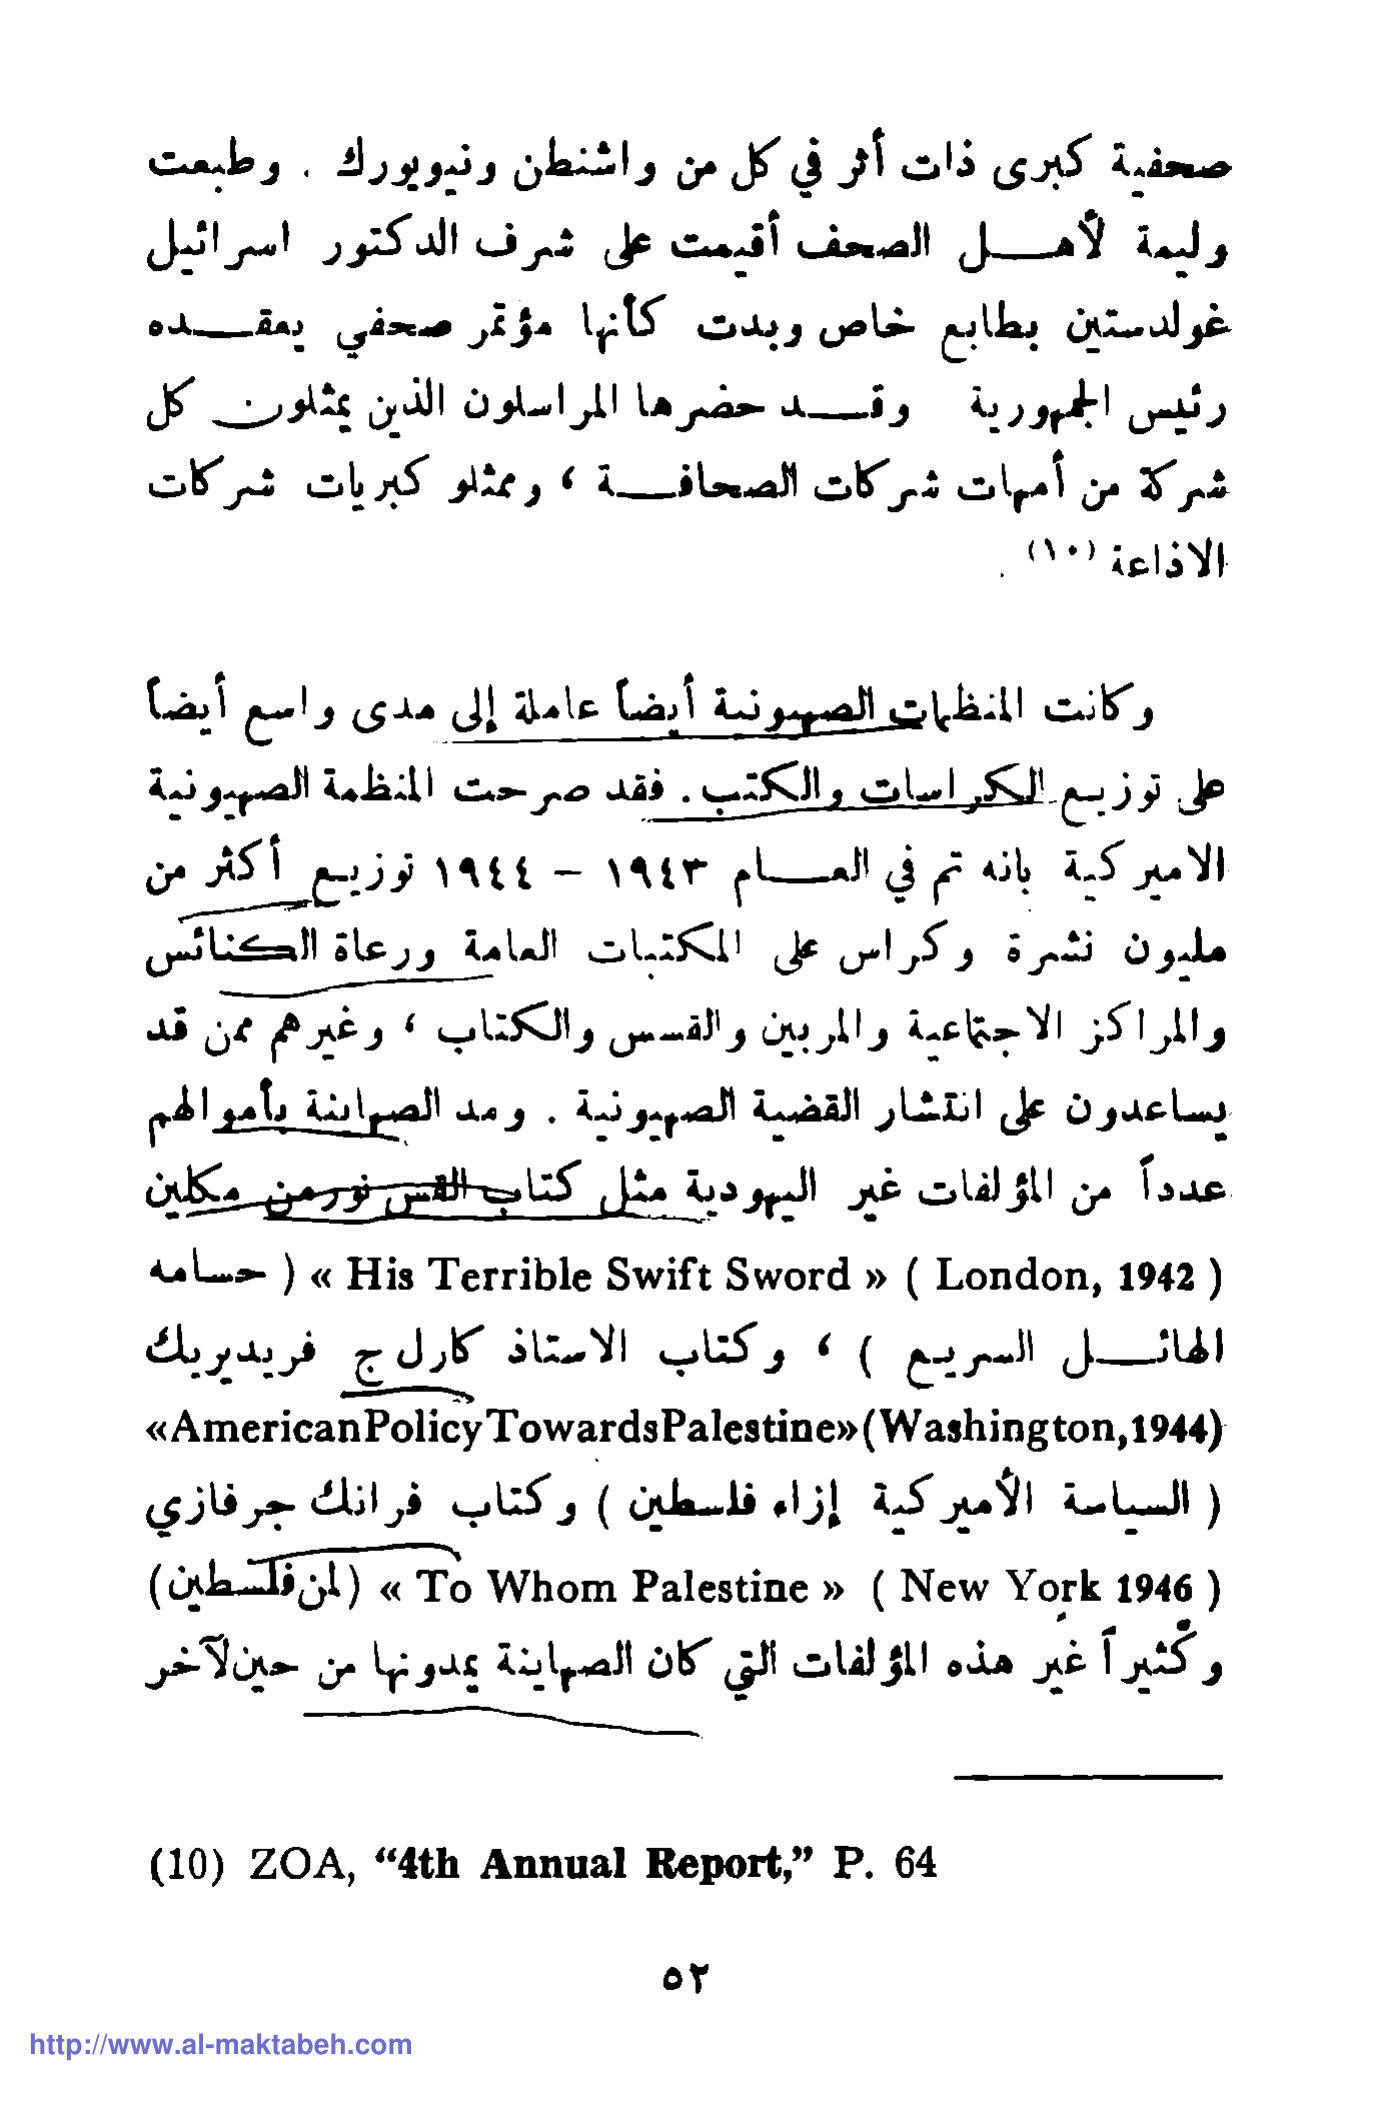 صحفية كبرى ذات أثر في كل من واشنطن ونيويورك . وطبعت
وليمة لأهل الصحف أقيمت على شرف الدكتور اسرائيل
غولدستين بطابع خاص وبدت كأنها مؤتمر صحفي يعقده
رئيس الجمهورية وقد حضرها المراسلون الذين يمثلون كل
شركة من أمهات شركات الصحافة ، وممثلو كبريات شركات
الاذاعة (١٠) .
وكانت المنظمات الصهيونية أيضاً عاملة إلى مدى واسع أيضاً
على توزيع الكراسات والكتب . فقد صرحت المنظمة الصهيونية
الاميركية بانه تم في العام ١٩٤٣ – ١٩٤٤ توزيع أكثر من
مليون نشرة وكراس على المكتبات العامة ورعاة الكنائس
والمراكز الاجتماعية والمربين والقسس والكتاب ، وغيرهم ممن قد
يساعدون على انتشار القضية الصهيونية . ومد الصهاينة بأموالهم
عدداً من المؤلفات غير اليهودية مثل كتاب القس نورمن مكلين
« His Terrible Swift Sword » ( London, 1942 ) ( حسامه
الهائل السريع ) ، وكتاب الاستاذ كارل ج فريديريك
«American Policy Towards Palestine» (Washington, 1944)
( السياسة الأميركية إزاء فلسطين ) وكتاب فرانك جرفازي
« To Whom Palestine » ( New York 1946 ) (لمن فلسطين)
وكثيراً غير هذه المؤلفات التي كان الصهاينة يمدونها من حين لآخر
(10) ZOA, “4th Annual Report,” P. 64
٥٢
http://www.al-maktabeh.com